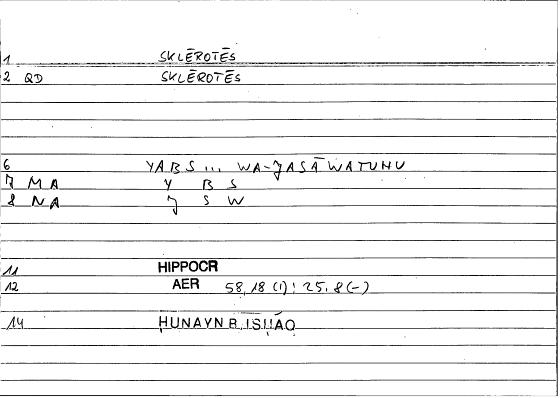 1 SKLĒROTĒS
2 QD SKLĒROTĒS
6 YABS... WA-JASĀWATUHU
7 MA Y B S
8 NA J S W
11 HIPPOCR
12 AER 58,18 (1); 25,8 (-)
14 ḤUNAYN B. ISḤĀQ